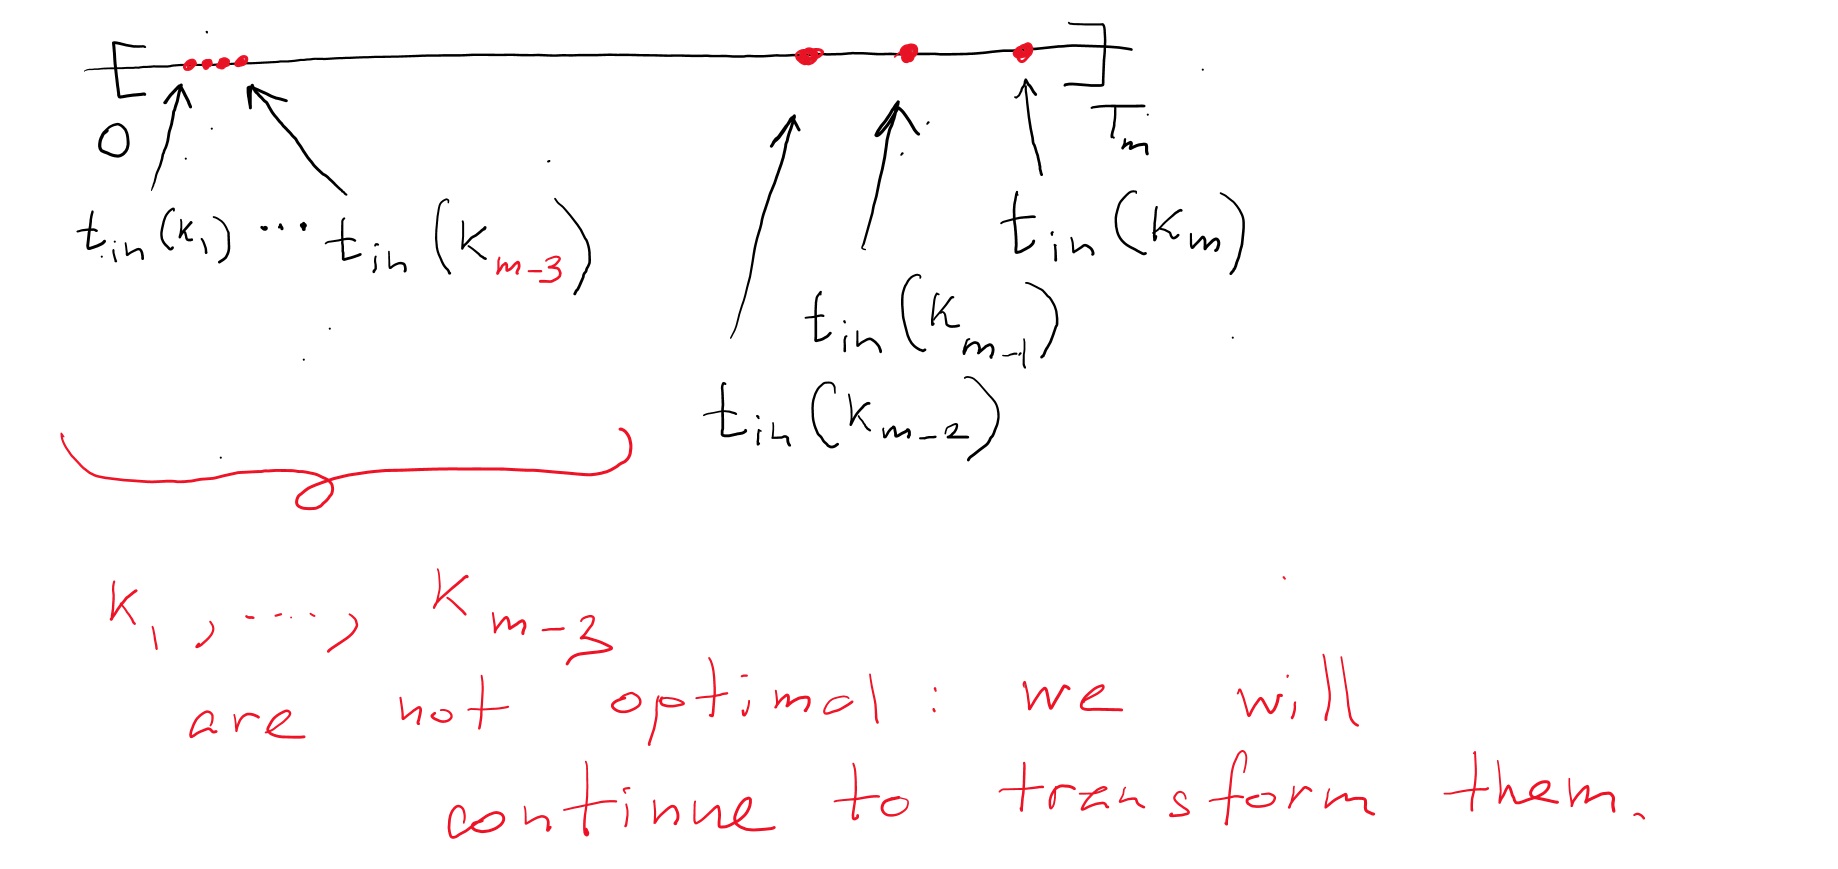 0
T_m
t_in(k_1) ... t_in(k_m-3)
t_in(k_m)
t_in(k_m-1)
t_in(k_m-2)
k_1, ...., k_m-3
are not optimal: we will
continue to transform them.